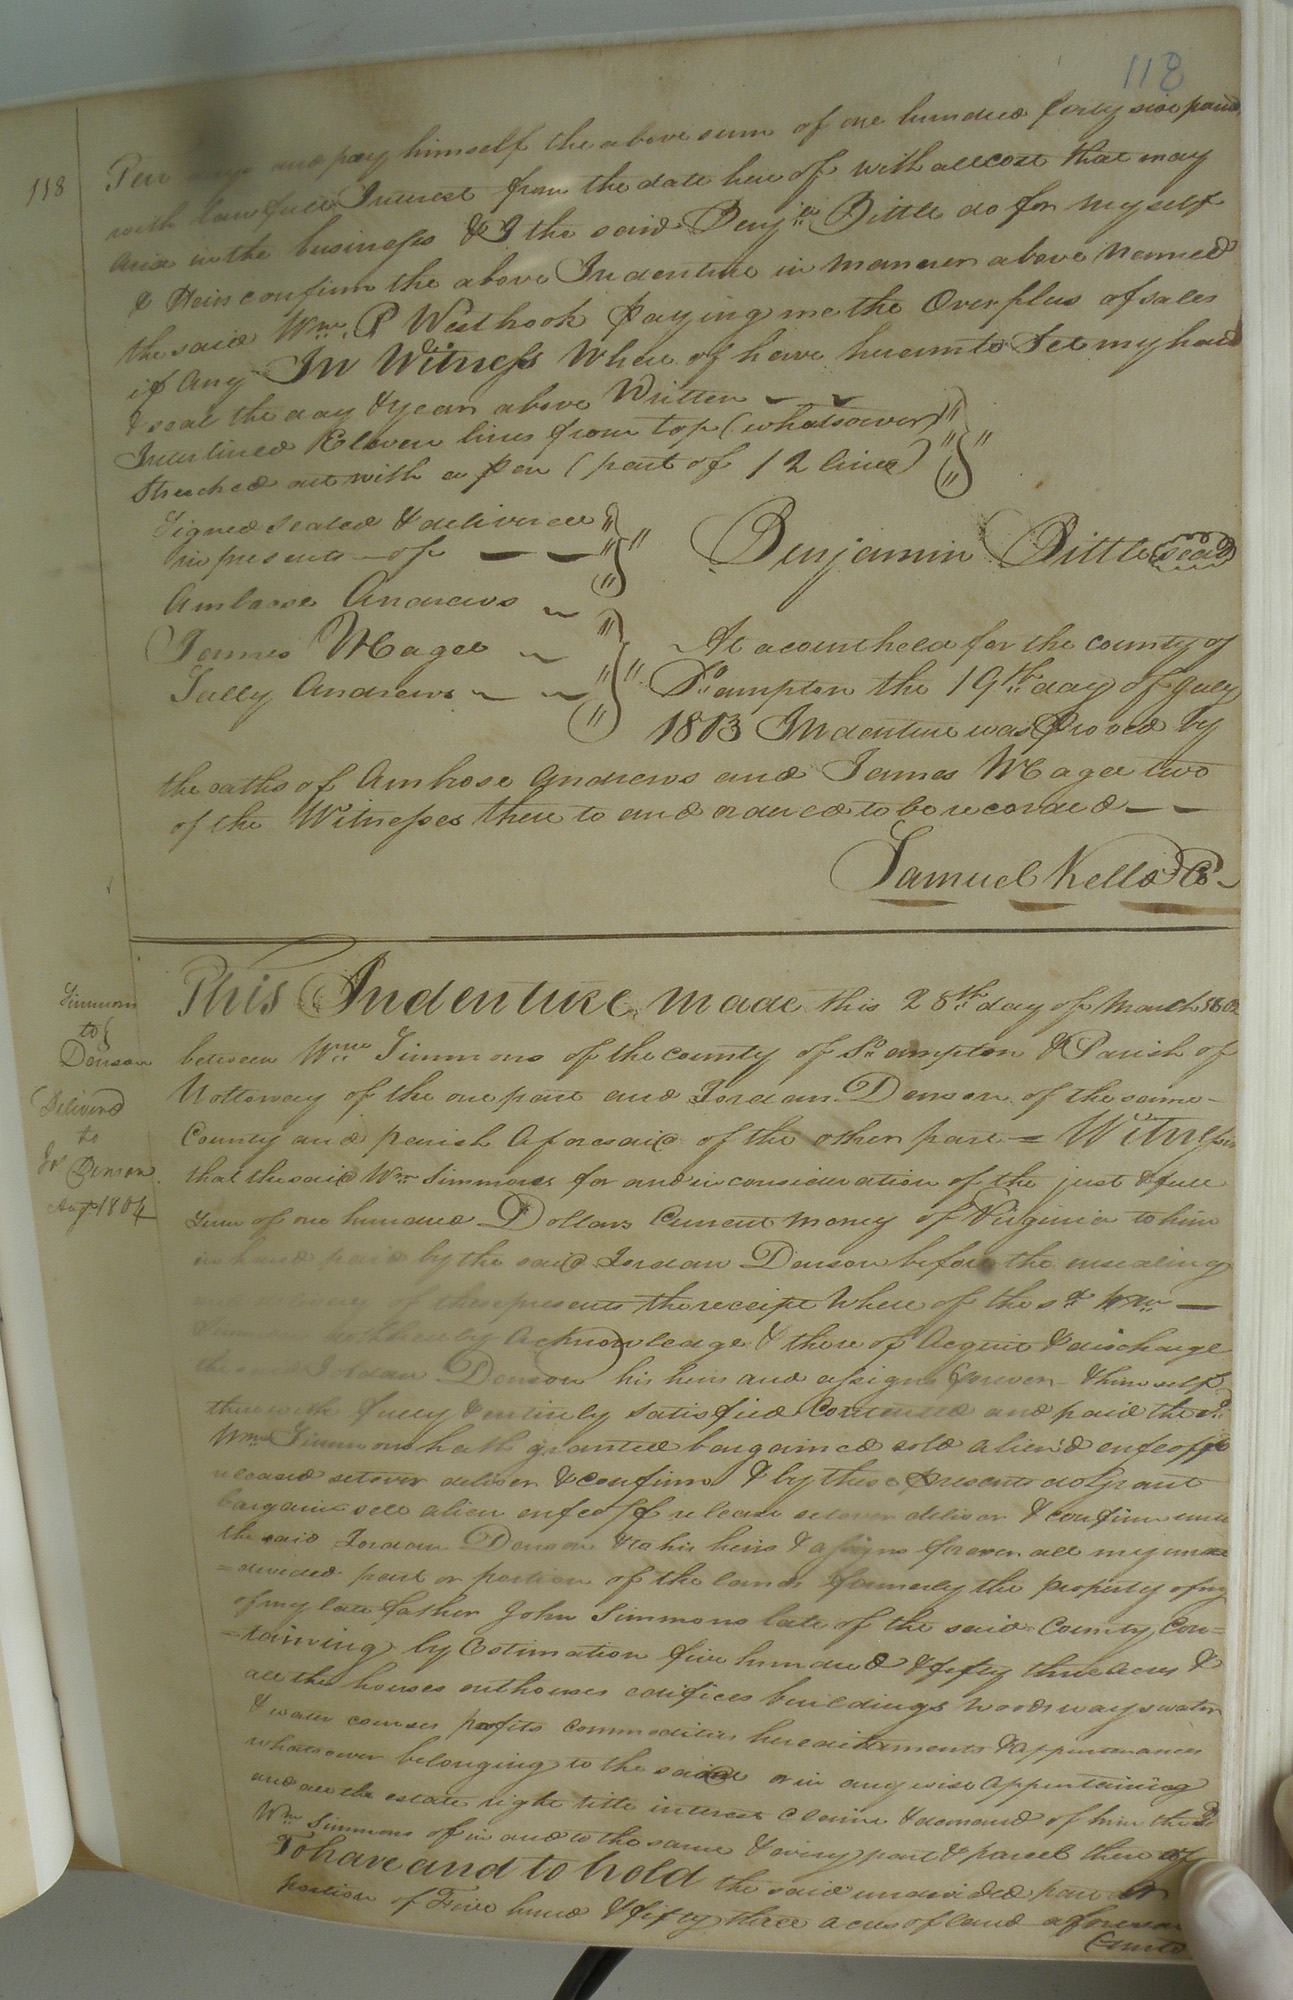 118
118
and pay himself the above sum of one hundred forty six pound
with lawfull Interest from the date here of with all cost that may
arise in the business & I the said Benjn Bittle do for myself
& Heirs confirm the above Indenture in manner above named
the said Wm. P Westbrook paying me the Overplus of sales
if any In Witness Where of have hereunto Set my hand
& seal the day & year above Written
Interlined Eleven lines from top (whatsoever)
Streched out with a pen (part of 12 lines)
Signed sealed & delivered
in presents of
Benjamin Bittle seal
Ambrose Andrews
James Magee
Sally Andrews
At a court held for the county of
So.ampton the 19th day of July
1803 Indenture was Proved by
the oaths of Ambrose Andrews and James Magee two
of the Witnesses there to and ordered to be recorded
Samuel Kello Cs
Simmons
to
Denson
Delivered
to
Jo Denson
Augt 1804
This Indenture made this 28th day of March 1803
between Wm Simmons of the county of So.ampton & Parish of
Nottoway of the one part and Jordan Denson of the same
County and parish aforesaid of the other part = Witnesses
that the said Wm Simmons for and in consideration of the just & full
Sum of one hundred Dollars Current money of Virginia to him
in hand paid by the said Jordan Denson before the ensealing
and delivery of these presents the receipt Where of the sd Wm
Simmons doth hereby Acknowledge & there of Acquit & discharge
the said Jordan Denson his heirs and assigns forever & himself
therewith fully & entirely satisfied Contented and paid the sd
Wm Simmons hath granted bargained sold alien'd enfeoff'd
released setover deliver & confirm & by these presents do Grant
bargain sell alien enfeoff release setover deliver & confirm unto
the said Jordan Denson & to his heirs & assigns forever all my un
=divided part or portion of the lands formerly the property of my
of my late father John Simmons late of the said County Con=
=taining by Estimation five hundred & fifty three acres &
all the houses outhouses edifices buildings woods ways waters
& water courses profits commodities hereditaments & appurtenances
whatsoever belonging to the said or in any wise appertaining
and all the estate right title interest claim & demand of him the sd
Wm Simmons of in and to the same & every part & parcel there of
To have and to hold the said undivided part or
portion of Five hund & fifty three acres of land aforesaid
(unto